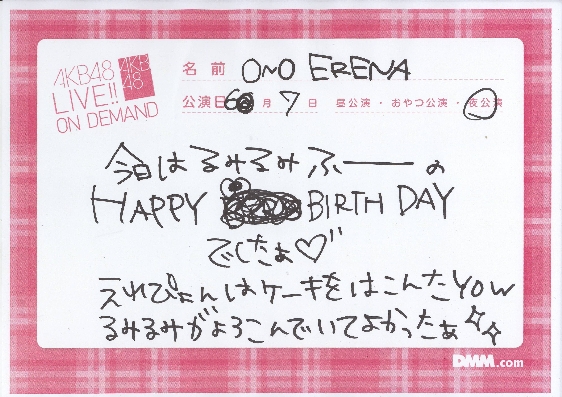 AKB48
LIVE!!
ON DEMAND
AKB
48
名前 ONO ERENA
公演日 6月7日 昼公演・おやつ公演・夜公演
今日はるみるみふーーの
HAPPY BIRTH DAY
でしたぁ♡"
えれぴょんはケーキをはこんだYOW
るみるみがよろこんでいてよかったぁ☆☆
DMM.com